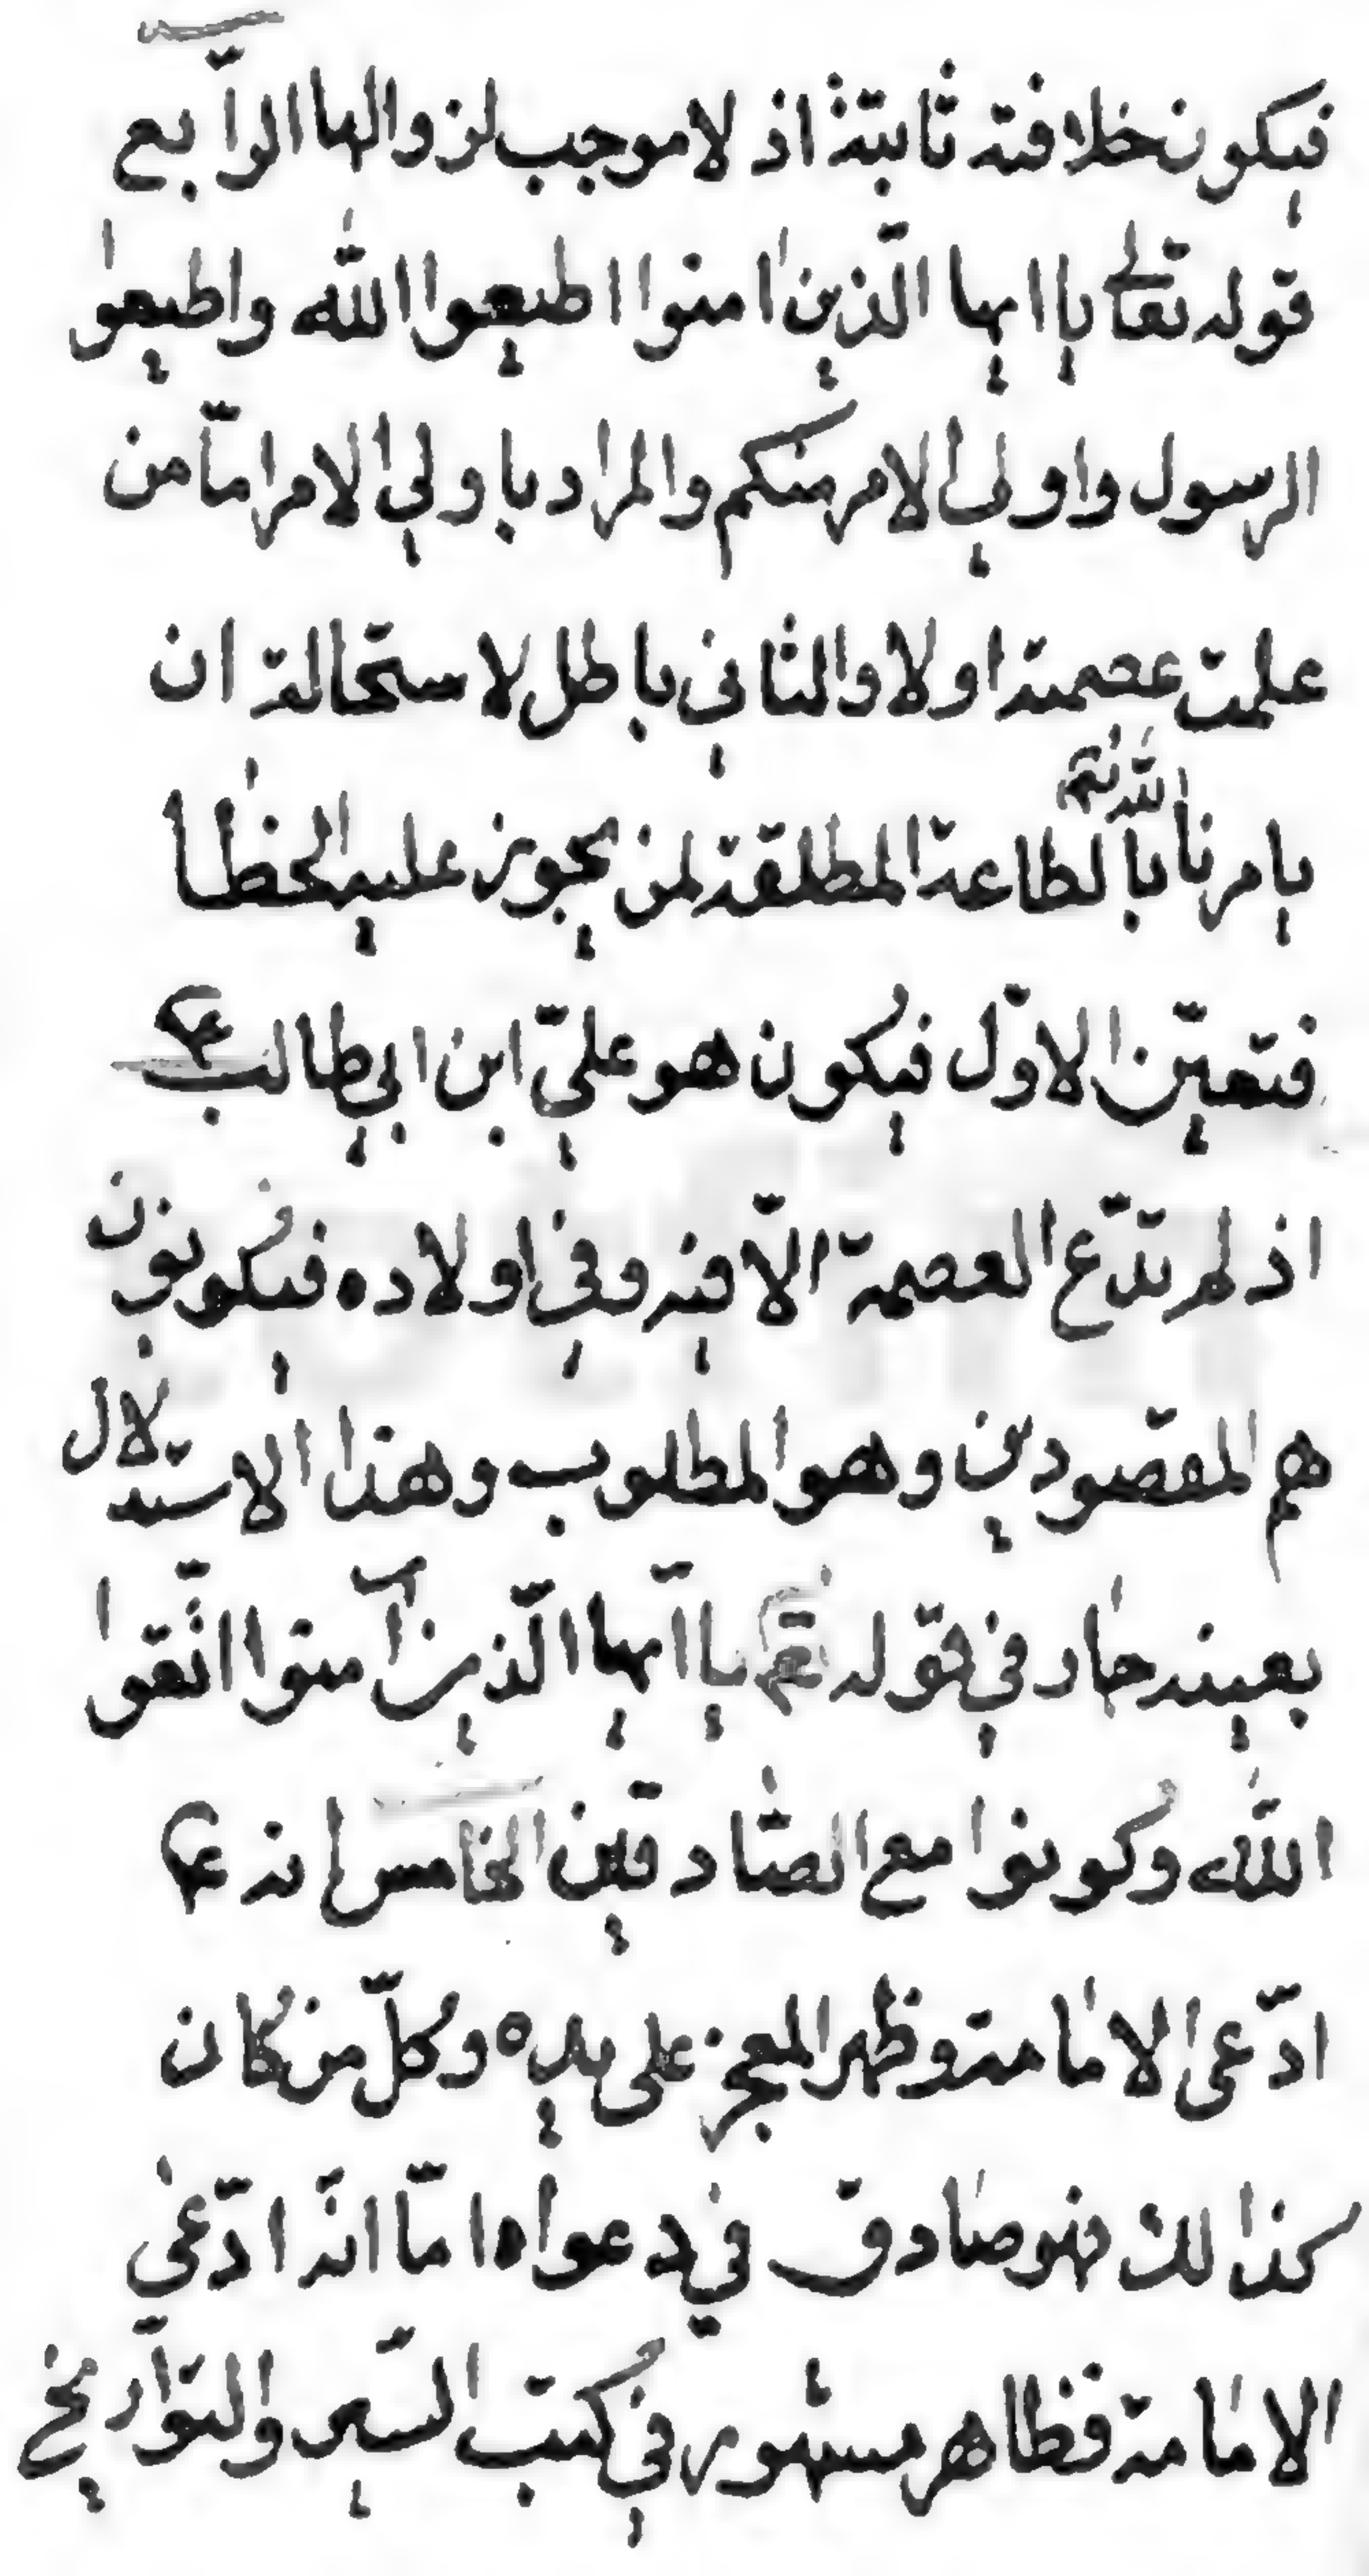 فيكون خلافته ثابتة اذ لا موجب لزوالها الرّابع
قوله تعالى يا ايها الّذين امنوا اطيعوا اللّٰه واطيعوا
الرسول واولى الامر منكم والمراد باولي الامر امّا من
علمت عصمته اولا والثاني باطل لاستحالة ان
يامرنا اللّٰه تعم بالطاعة المطلقة لمن يجوز عليه الخطٰا
فتعيّن الاوّل فيكون هو عليّ ابن ابي طالب ع
اذ لم تدّع العصمة الّا فيه وفي اولاده فيكونون
هم المقصودين وهو المطلوب وهذا الاستدلال
بعينه جار في قوله تعم يا ايها الّذين آمنوا اتّقوا
اللّٰه وكونوا مع الصّادقين الخامس انه ع
ادّعى الامامة وظهر المعجز على يده وكلّ من كان
كذالك فهو صادق في دعواه امّا انّه ادّعى
الامامة فظاهر مشهور في كتب السّير والتّواريخ